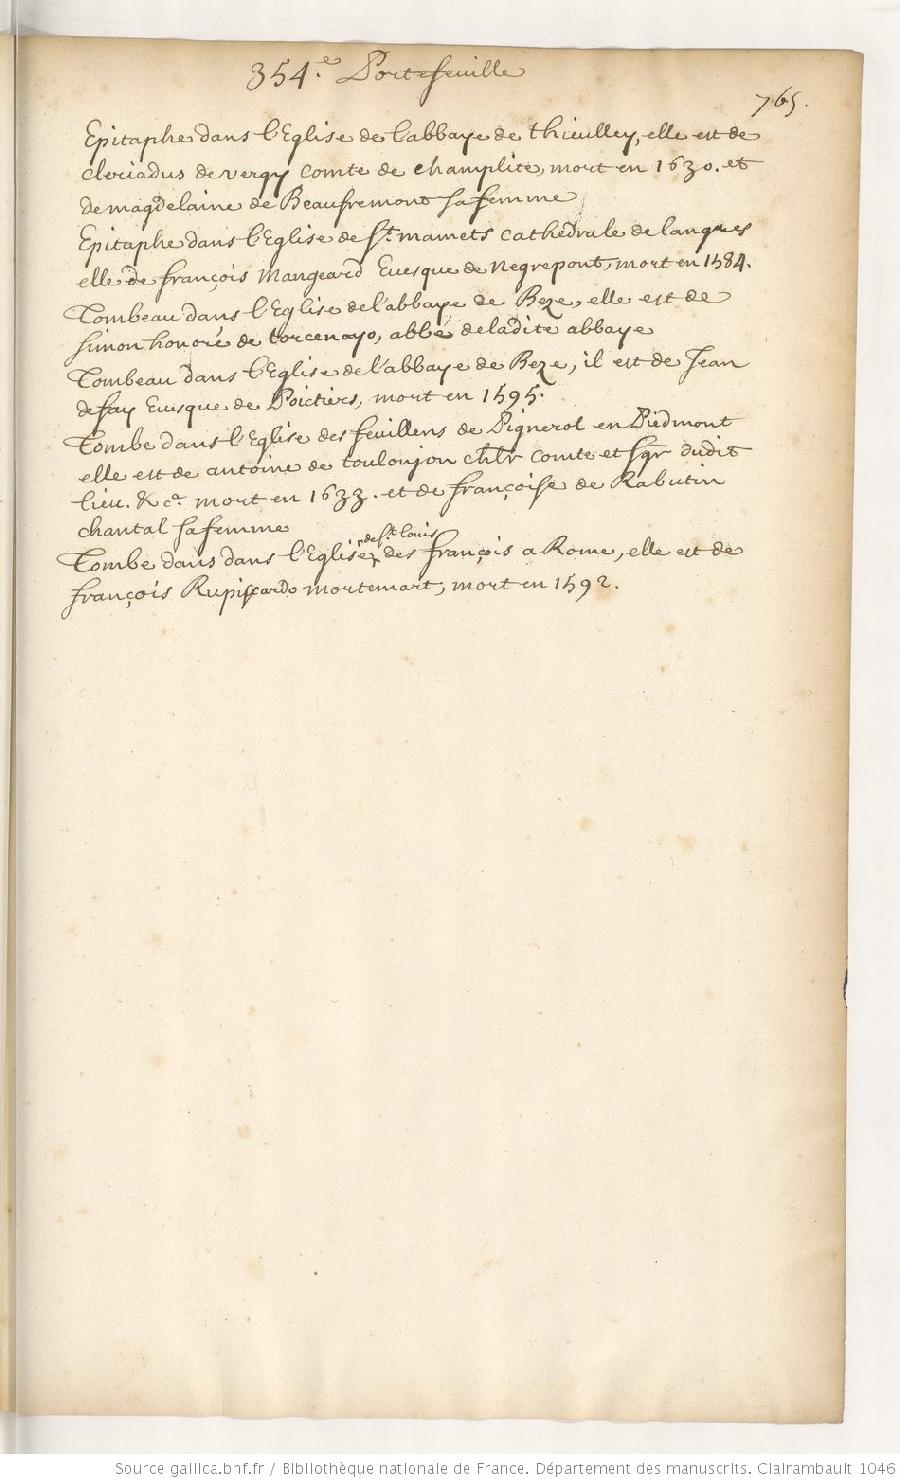 354.e Portefeuille
765.
Epitaphe dans l'Eglise de l'abbaye de thieulley, elle est de
cleriadus de vergy comte de champlite, mort en 1630. et
de magdelaine de Beaufremont sa femme
Epitaphe dans l'Eglise de St. mamets cathedrale de langres
elle de françois Mangeard Evesque de Negrepont, mort en 1584.
Tombeau dans l'Eglise de l'abbaye de Beze, elle est de
simon honoré de torcenayo, abbé de ladite abbaye
Tombeau dans l'Eglise de l'abbaye de Beze, il est de Jean
de fay Evesque de Poictiers, mort en 1595.
Tombe dans l'Eglise des feuillens de Pignerol en Piedmont
elle est de antoine de toulonjon chlr comte et sgr dudit
lieu. &ca. mort en 1633. et de françoise de Rabutin
chantal sa femme
de St. louis
Tombe dans dans l'Eglise des françois a Rome, elle est de
françois Rupiscardo mortemart, mort en 1592.
Source gallica.bnf.fr / Bibliothèque nationale de France. Département des manuscrits. Clairambault 1046